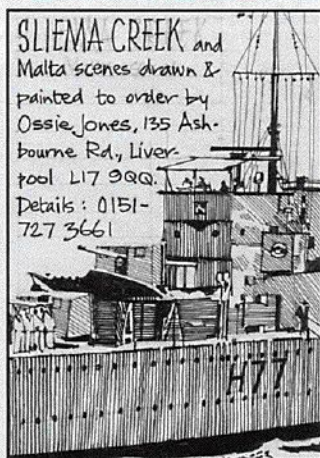 SLIEMA CREEK and
Malta scenes drawn &
painted to order by
Ossie Jones, 135 Ash-
bourne Rd., Liver-
pool L17 9QQ.
Details : 0151-
727 3661
H77